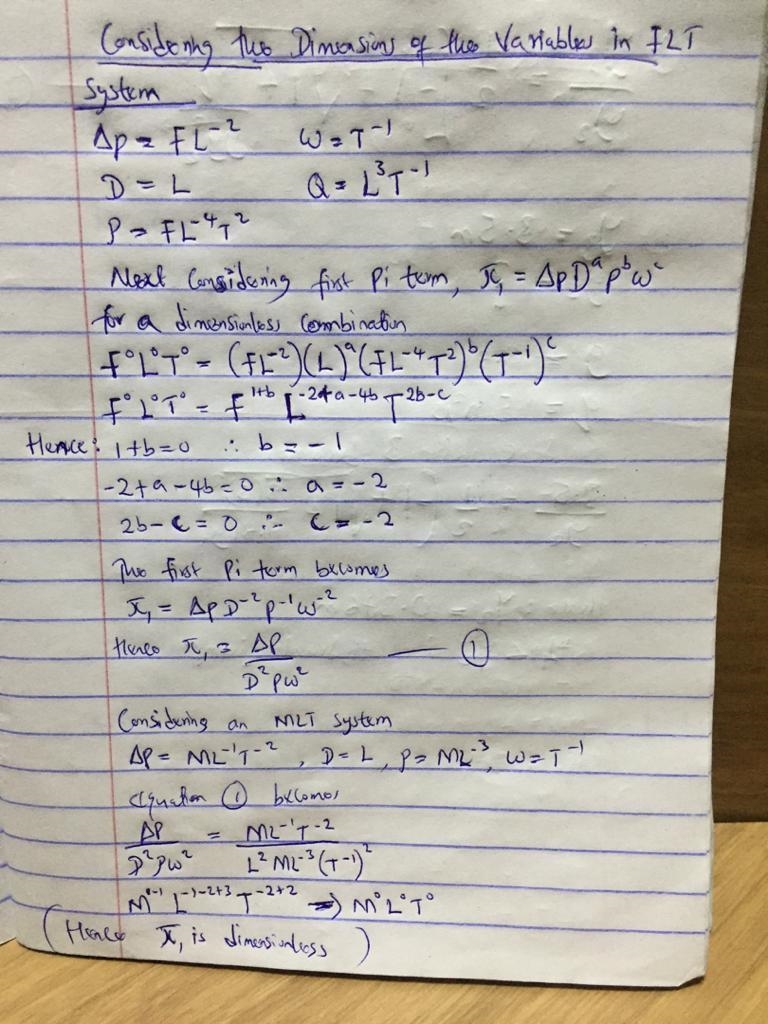 Considering the Dimensions of the Variables in FLT
System
Δp = FL⁻² ω = T⁻¹
D = L Q = L³T⁻¹
ρ = FL⁻⁴T²
Next Considering first Pi term, π₁ = ΔpDᵃρᵇωᶜ
for a dimensionless Combination
F⁰L⁰T⁰ = (FL⁻²)(L)ᵃ(FL⁻⁴T²)ᵇ(T⁻¹)ᶜ
F⁰L⁰T⁰ = F¹⁺ᵇ L⁻²⁺ᵃ⁻⁴ᵇ T²ᵇ⁻ᶜ
Hence: 1+b=0 ∴ b = -1
-2+a-4b=0 ∴ a = -2
2b-c = 0 ∴ c = -2
The first Pi term becomes
π₁ = ΔpD⁻²ρ⁻¹ω⁻²
Hence π₁ = ΔP / D²ρω² — ①
Considering an MLT system
ΔP = ML⁻¹T⁻² , D = L , ρ = ML⁻³, ω = T⁻¹
equation ① becomes
ΔP / D²ρω² = ML⁻¹T⁻² / L² ML⁻³ (T⁻¹)²
L⁻¹⁻²⁺³ T⁻²⁺² ⇒ M⁰L⁰T⁰
(Hence π₁ is dimensionless)